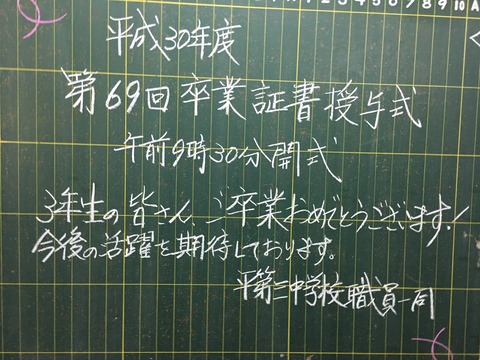 1 2 3 4 5 6 7 8 9 10 A
平成30年度
第69回卒業証書授与式
午前9時30分開式
3年生の皆さん ご卒業おめでとうございます!
今後の活躍を期待しております。
平第三中学校職員一同